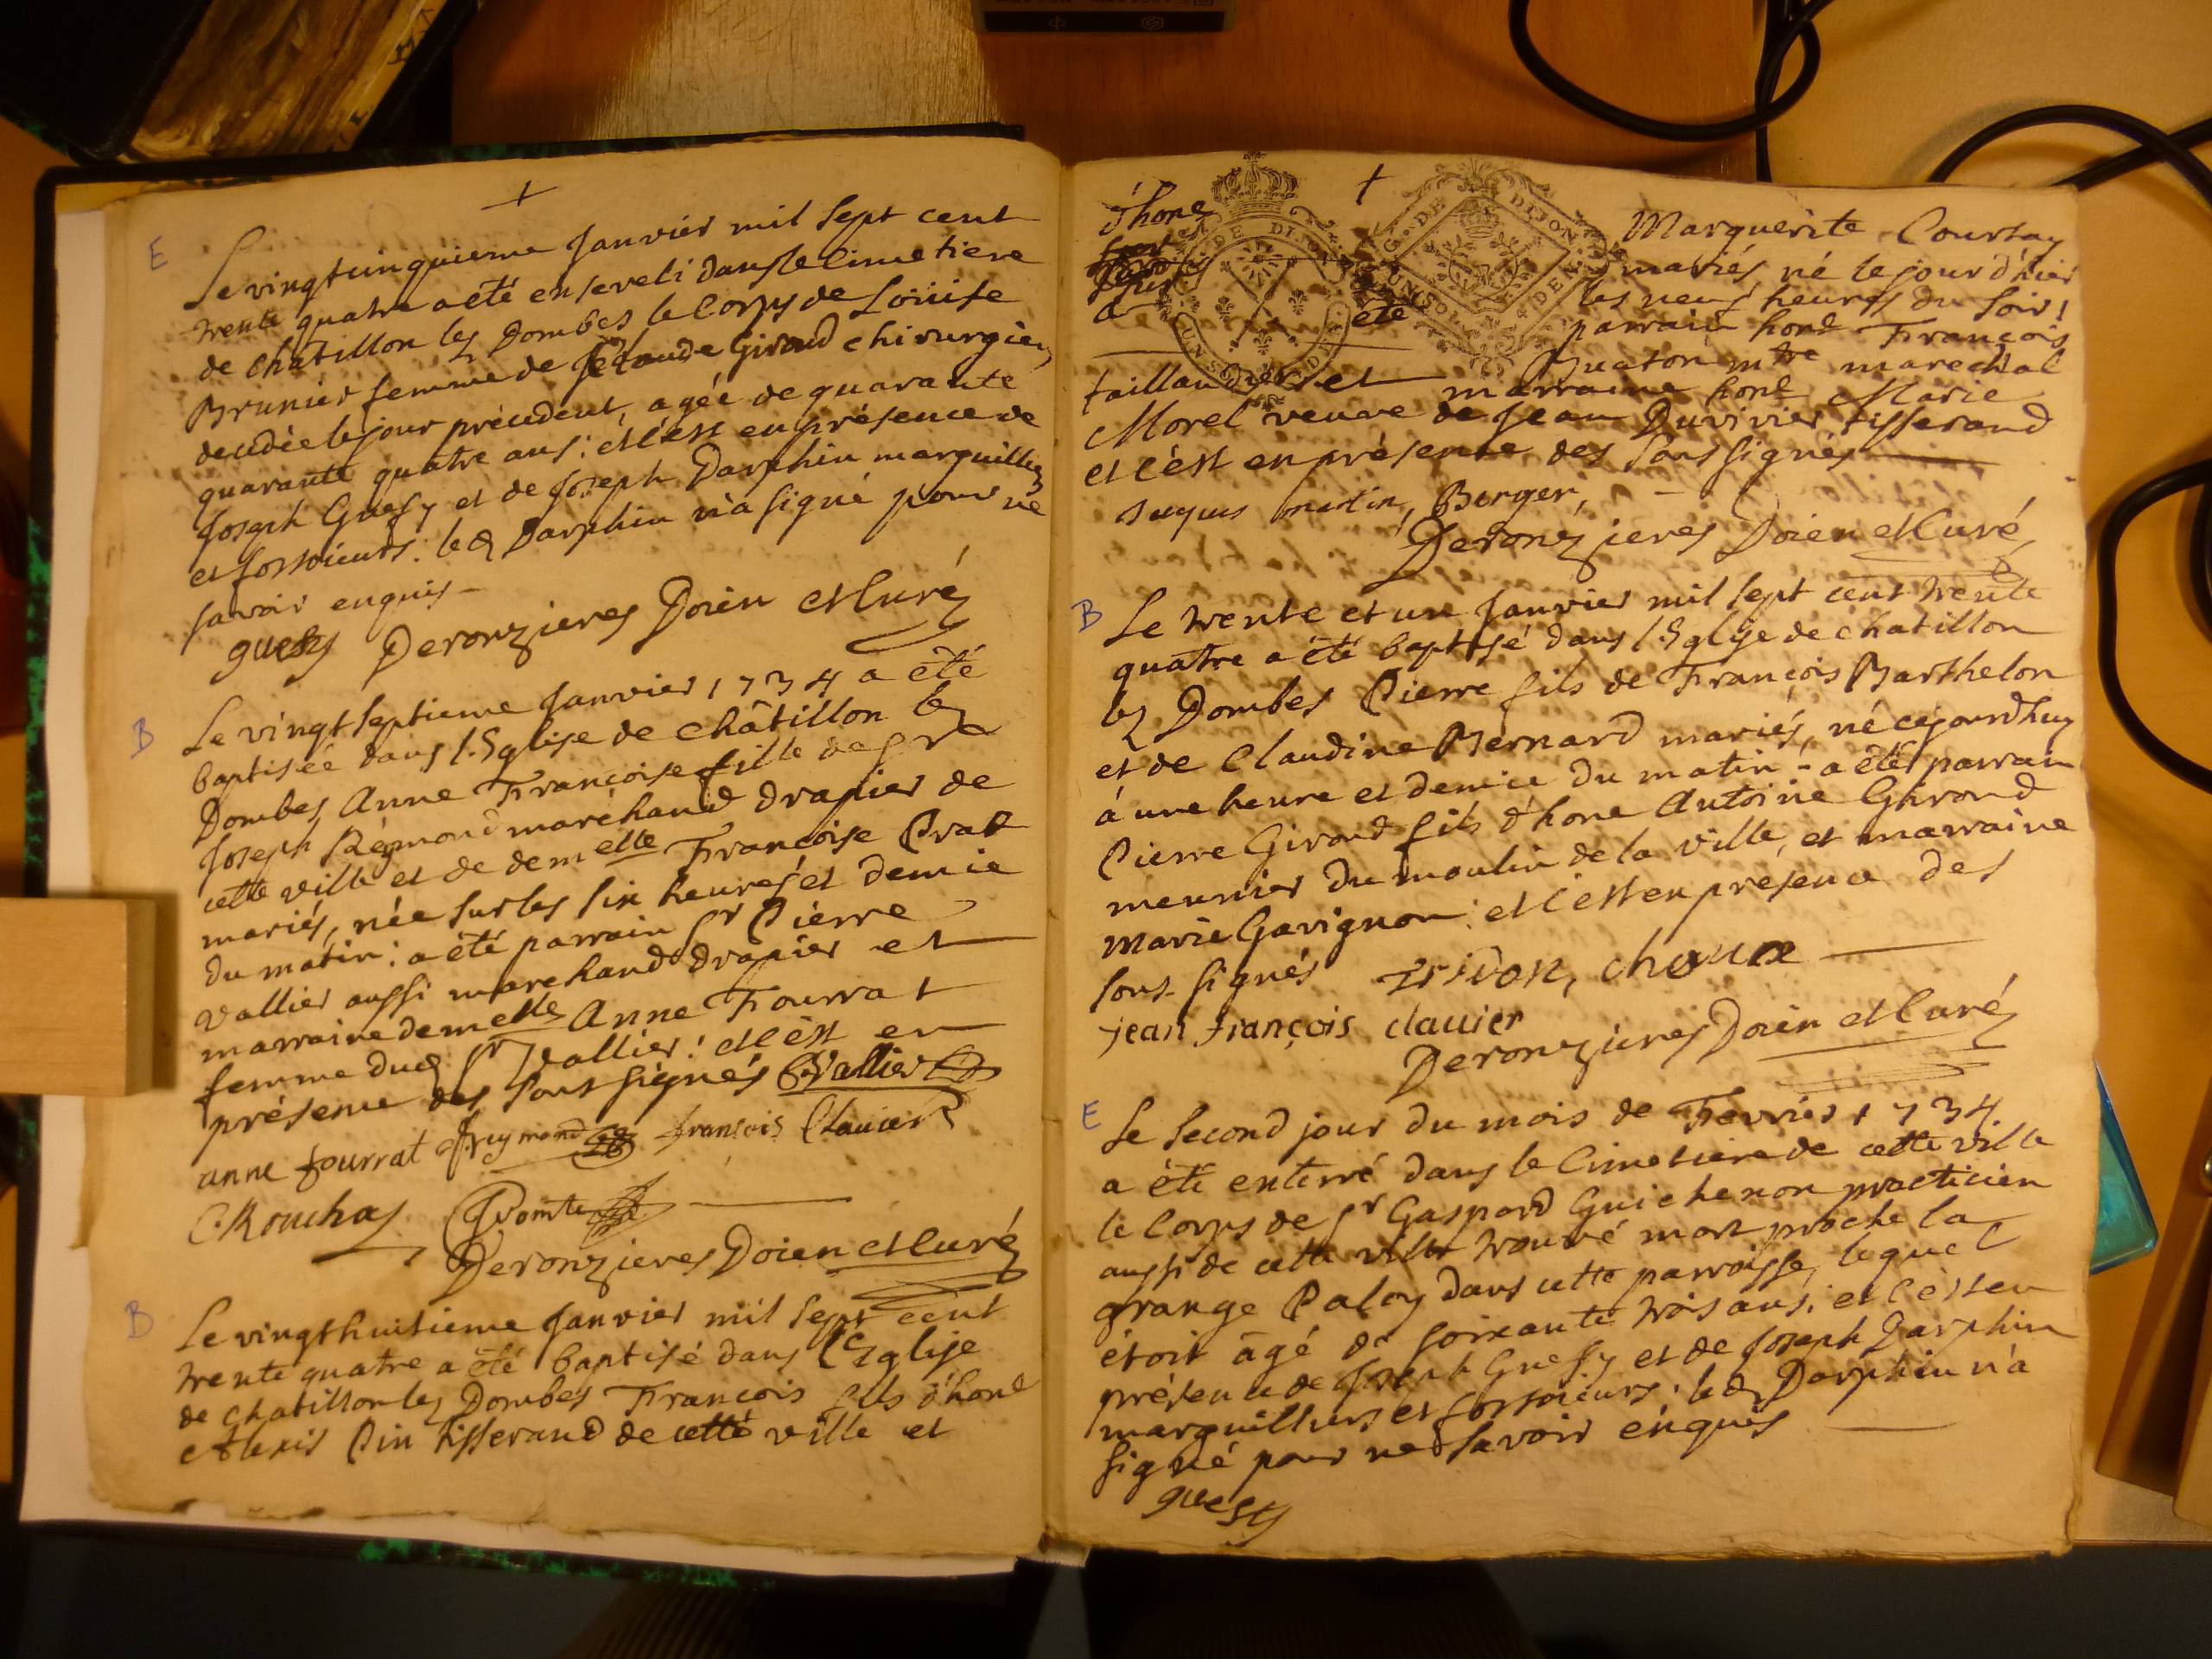 E
Le vingtcinquieme Janvier mil sept cent
trente quatre a été enseveli dans le Cimetiere
de Châtillon lez Dombes le Corps de Loüise
Brunier femme de Claude Giroud chirurgien
decedée le jour précedent, agée de quarante
quarante quatre ans : et c'est en présence de
Joseph Guesy et de Joseph Darphin marguilliers
et fossoieurs. led Darphin n'a signé pour ne
savoir enquis
guesy Deronzieres Doien et Curé
B
Le vingtseptieme Janvier 1734 a été
baptisée dans l'Eglise de Châtillon lez
Dombes Anne Françoise fille de Sr
Joseph Reymond marchand drapier de
cette ville et de demelle Françoise Prat
mariés, née sur les six heures et demie
du matin : a été parrain Sr Pierre
Vallier aussi marchand drapier et
marraine demelle Anne Fourrat
femme dud Sr Vallier : et c'est en
présence des sous signés Vallier
anne fourrat Jreymond françois Clauier
C. Rouchas
Deronzieres Doien et Curé
B
Le vingthuitieme Janvier mil sept cent
trente quatre a été baptisé dans l'Eglise
de Chatillon lez Dombes François fils d'hone
Alexis Pin tisserand de cette ville et
d'hone
Marguerite Courtay
mariés, né le jour d'hier
les neuf heures du soir :
a été
parrain hone François
Buaton mtre marechal
taillandier et marraine hone Marie
Morel veuve de Jean Duvivier tisserand
et c'est en présence des sous signés
martin, Berger,
Deronzieres Doien et Curé
B
Le trente et un Janvier mil sept cent trente
quatre a été baptisé dans l'Eglise de chatillon
lez Dombes Pierre fils de François Barthelon
et de Claudine Bernard mariés, né cejourdhuy
à une heure et demie du matin - a été parrain
Pierre Giroud fils d'hone Antoine Giroud
meunier du moulin de la ville, et marraine
Marie Gavignon : et c'est en présence des
sous-signés Tridon, chaux
jean françois clauier
Deronzieres Doien et Curé
E
Le second jour du mois de Fevrier 1734
a été enterré dans le Cimetiere de cette ville
le Corps de Sr Gaspard Guichenon practicien
aussi de cette ville trouvé mort proche la
grange Paloy dans cette parroisse, lequel
étoit âgé de soixante trois ans : et c'est en
présence de Joseph Guesy et de Joseph Darphin
marguilliers et fossoieurs : led Darphin n'a
signé pour ne savoir enquis
guesy